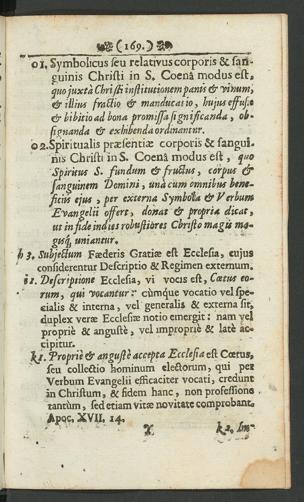 (169.)
01. Symbolicus seu relativus corporis & san-
guinis Christi in S. Coenâ modus est,
quo juxtà Christi institutionem panis & vinum,
& illius fractio & manducatio, hujus effusio
& bibitio ad bona promissa significanda, ob-
signanda & exhibenda ordinantur.
02. Spiritualis præsentiæ corporis & sangui-
nis Christi in S. Coenâ modus est, quo
Spiritus S. fundum & fructus, corpus &
sanguinem Domini, unà cum omnibus bene-
ficiis ejus, per externa Symbola & Verbum
Evangelii offert, donat & propria dicat,
ut in fide indies robustiores Christo magis ma-
gisq; uniantur.
h 3. Subjectum Fœderis Gratiæ est Ecclesia, cujus
considerentur Descriptio & Regimen externum.
i1. Descriptione Ecclesia, vi vocis est, Cœtus eo-
rum, qui vocantur: cùmque vocatio vel spe-
cialis & interna, vel generalis & externa sit,
duplex veræ Ecclesiæ notio emergit: nam vel
propriè & angustè, vel impropriè & latè ac-
cipitur.
k1. Propriè & angustè accepta Ecclesia est Cœtus,
seu collectio hominum electorum, qui per
Verbum Evangelii efficaciter vocati, credunt
in Christum, & fidem hanc, non professione
tantùm, sed etiam vitæ novitate comprobant.
Apoc. XVII. 14.
X k2. Im-